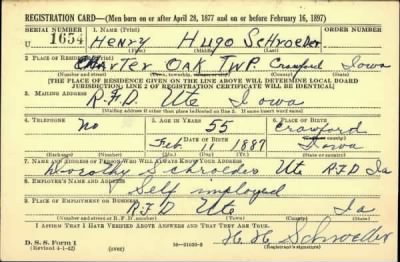 REGISTRATION CARD—(Men born on or after April 28, 1877 and on or before February 16, 1897)
SERIAL NUMBER 1. NAME (Print) ORDER NUMBER
U 1654 Henry Hugo Schroeder
(First) (Middle) (Last)
2. PLACE OF RESIDENCE (Print)
Charter Oak Twp. Crawford Iowa
(Number and street) (Town, township, village or city) (County) (State)
[THE PLACE OF RESIDENCE GIVEN ON THE LINE ABOVE WILL DETERMINE LOCAL BOARD
JURISDICTION; LINE 2 OF REGISTRATION CERTIFICATE WILL BE IDENTICAL]
3. MAILING ADDRESS
R.F.D. Ute Iowa
[Mailing address if other than place indicated on line 2. If same insert word same]
4. TELEPHONE 5. AGE IN YEARS 6. PLACE OF BIRTH
No 55 Crawford
DATE OF BIRTH (Town or county)
Feb. 11 1887 Iowa
(Exchange) (Number) (Mo.) (Day) (Yr.) (State or country)
7. NAME AND ADDRESS OF PERSON WHO WILL ALWAYS KNOW YOUR ADDRESS
Dorothy Schroeder Ute R.F.D Ia
8. EMPLOYER'S NAME AND ADDRESS
Self employed
9. PLACE OF EMPLOYMENT OR BUSINESS
R.F.D Ute Ia
(Number and street or R. F. D. number) (Town) (County) (State)
I AFFIRM THAT I HAVE VERIFIED ABOVE ANSWERS AND THAT THEY ARE TRUE.
D. S. S. Form 1
(Revised 4-1-42) (over) H. H. Schroeder
(Registrant's signature)